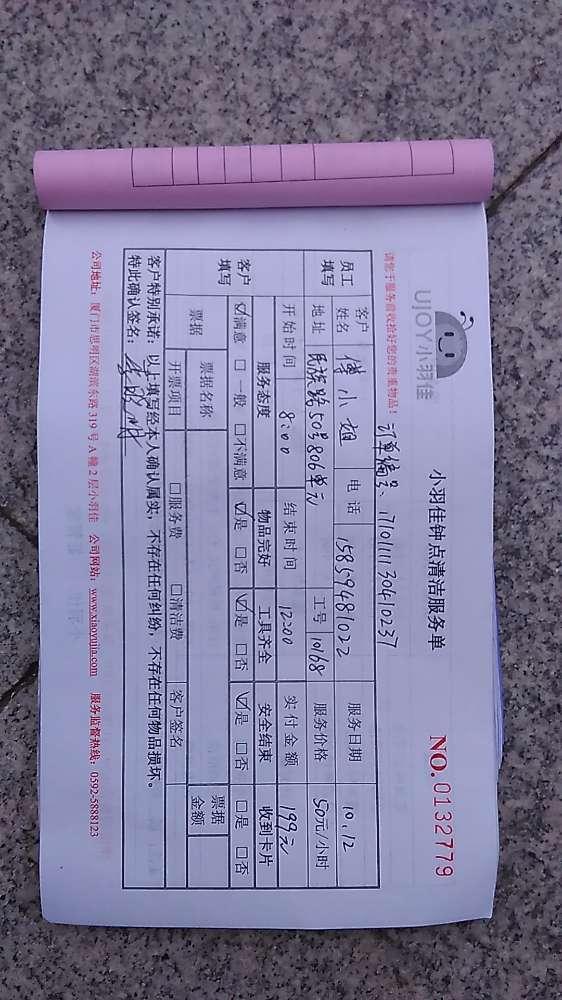 UJOY小羽佳
小羽佳钟点清洁服务单
NO. 0132779
请您于服务前收拾好您的贵重物品！
订单编号: 17101113041 0237
员工填写
客户姓名 傅小姐 电话 15859481022 服务日期 10.12
地址 民族路50号806单元 工号 10168 服务价格 50元/小时
开始时间 8:00 结束时间 12:00 实付金额 199元
客户填写
服务态度 物品完好 工具齐全 安全结束 收到卡片
☑满意 □一般 □不满意 ☑是 □否 ☑是 □否 ☑是 □否 □是 □否
票据 票据名称 票据金额
开票项目 □服务费 □清洁费 客户签名
客户特别承诺：以上填写经本人确认属实，不存在任何纠纷，不存在任何物品损坏。
特此确认签名：
公司地址：厦门市思明区湖滨东路319号A幢2层小羽佳 公司网站：www.xiaoyujia.com 服务监督热线：0592-5888123